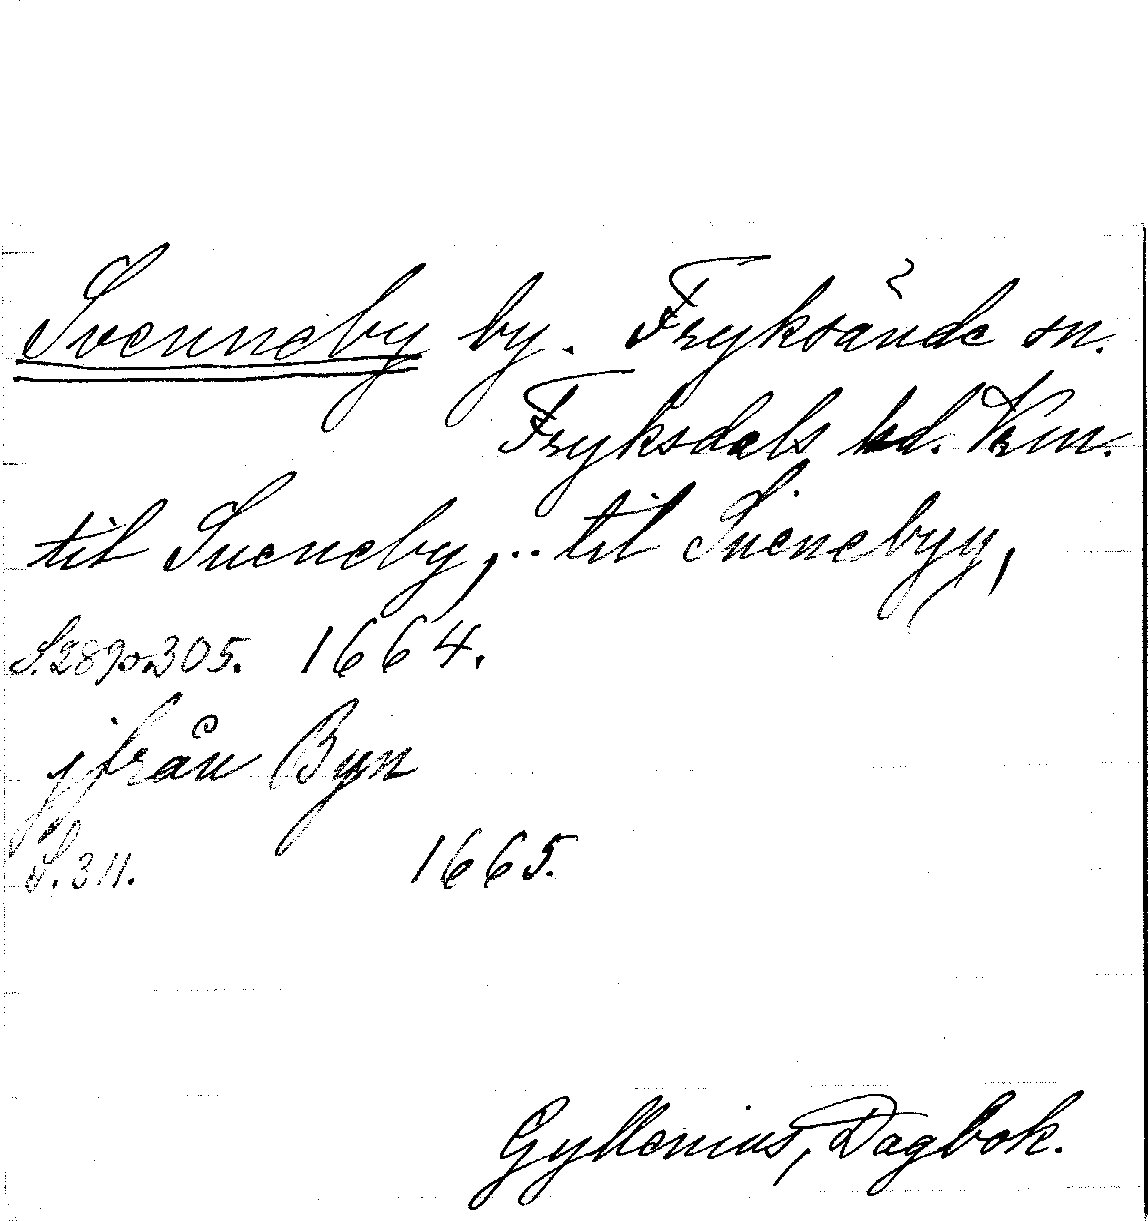 Svenneby by. Fryksände sn.
Fryksdals hd. Vrm.
till Sveneby, .. till Svenebyy,
S. 289 o. 305. 1664.
ifrån Byn
S. 311. 1665.
Gyllenius, Dagbok.